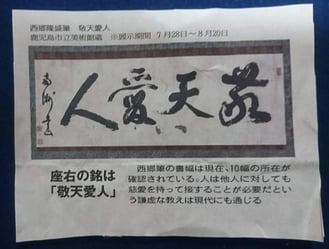 西郷隆盛筆 敬天愛人
鹿児島市立美術館蔵 ※展示期間 7月28日〜8月20日
人愛天敬
座右の銘は
「敬天愛人」
西郷筆の書幅は現在、10幅の所在が
確認されている。人は他人に対しても
慈愛を持って接することが必要だとい
う謙虚な教えは現代にも通じる